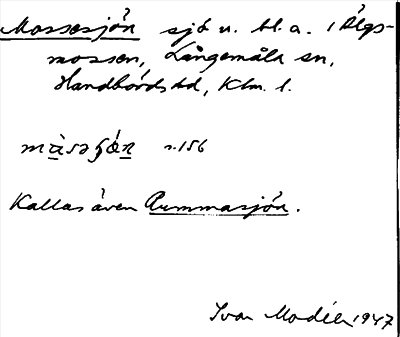 Mossesjön sjö n. bl. a. i Älgs-
mossen, Långemåla sn,
Handbörds hd, Klm. l.
s. 156
Kallas även Rummasjön.
Ivar Modéer 1947